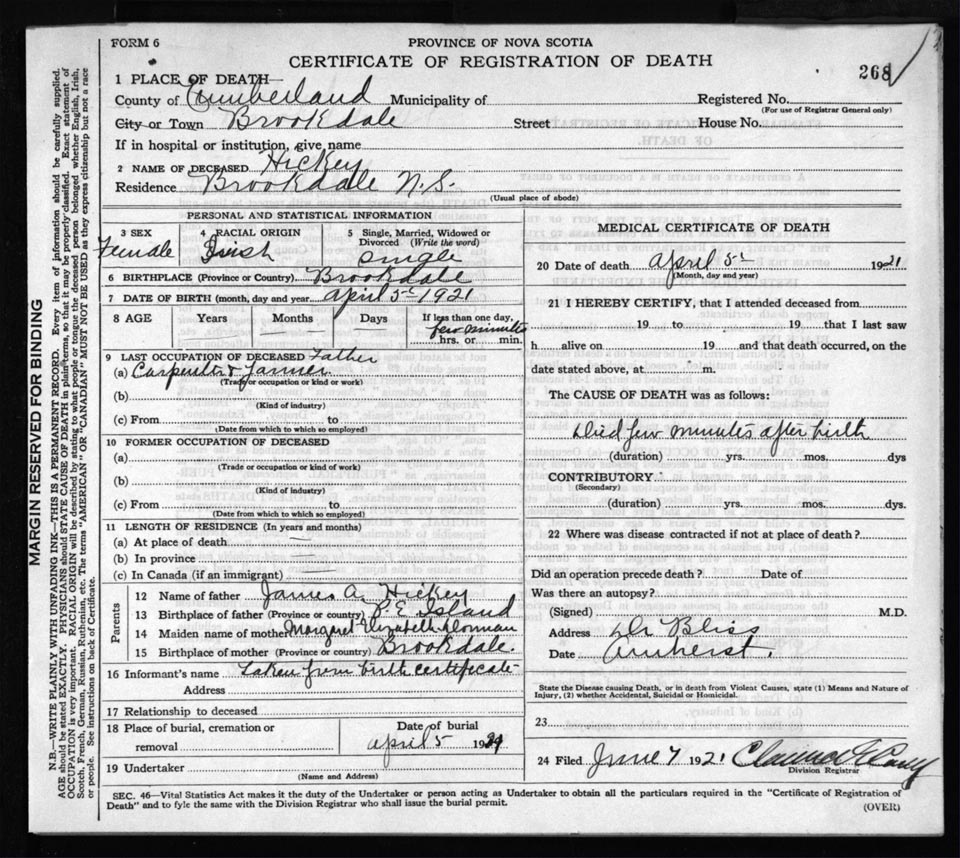 FORM 6
PROVINCE OF NOVA SCOTIA
CERTIFICATE OF REGISTRATION OF DEATH
268
1 PLACE OF DEATH
County of Cumberland Municipality of
Registered No.
(For use of Registrar General only)
City or Town Brookdale Street House No.
If in hospital or institution, give name
2 NAME OF DECEASED Hickey
Residence Brookdale N.S.
(Usual place of abode)
PERSONAL AND STATISTICAL INFORMATION
3 SEX
Female
4 RACIAL ORIGIN
Irish
5 Single, Married, Widowed or Divorced (Write the word)
single
6 BIRTHPLACE (Province or Country) Brookdale
7 DATE OF BIRTH (month, day and year April 5th 1921
8 AGE Years Months Days If less than one day,
few minutes
hrs. or min.
9 LAST OCCUPATION OF DECEASED Father
(a) Carpenter & Farmer
(Trade or occupation or kind or work)
(b)
(Kind of industry)
(c) From to
(Date from which to which so employed)
10 FORMER OCCUPATION OF DECEASED
(a)
(Trade or occupation or kind of work)
(b)
(Kind of industry)
(c) From to
(Date from which to which so employed)
11 LENGTH OF RESIDENCE (In years and months)
(a) At place of death
(b) In province
(c) In Canada (if an immigrant)
Parents
12 Name of father James A. Hickey
13 Birthplace of father (Province or country) P.E. Island
14 Maiden name of mother Margaret Elizabeth
15 Birthplace of mother (Province or country) Brookdale.
16 Informant's name taken from birth certificate
Address
17 Relationship to deceased
18 Place of burial, cremation or removal
Date of burial
April 5 1921
19 Undertaker
(Name and Address)
MEDICAL CERTIFICATE OF DEATH
20 Date of death April 5th 1921
(Month, day and year)
21 I HEREBY CERTIFY, that I attended deceased from
19 to 19 that I last saw
h alive on 19 and that death occurred, on the
date stated above, at m.
The CAUSE OF DEATH was as follows:
Died few minutes after birth
(duration) yrs. mos. dys
CONTRIBUTORY
(Secondary)
(duration) yrs. mos. dys.
22 Where was disease contracted if not at place of death?
Did an operation precede death? Date of
Was there an autopsy?
(Signed) M.D.
Address Dr Bliss
Date Amherst.
State the Disease causing Death, or in death from Violent Causes, state (1) Means and Nature of
Injury, (2) whether Accidental, Suicidal or Homicidal.
23
24 Filed June 7 1921
Division Registrar
SEC. 46—Vital Statistics Act makes it the duty of the Undertaker or person acting as Undertaker to obtain all the particulars required in the "Certificate of Registration of
Death" and to fyle the same with the Division Registrar who shall issue the burial permit.
(OVER)
MARGIN RESERVED FOR BINDING
N.B.—WRITE PLAINLY WITH UNFADING INK—THIS IS A PERMANENT RECORD. Every item of information should be carefully supplied.
AGE should be stated EXACTLY. PHYSICIANS should STATE CAUSE OF DEATH in plain terms, so that it may be properly classified. Exact statement of
OCCUPATION is very important. RACIAL ORIGIN will be described by stating to what people or tongue the deceased person belonged whether English, Irish,
Scotch, French, German, Russian, Ruthenian, etc. The terms "AMERICAN" OR "CANADIAN" MUST NOT BE USED as they express citizenship but not a race
or people. See instructions on back of Certificate.